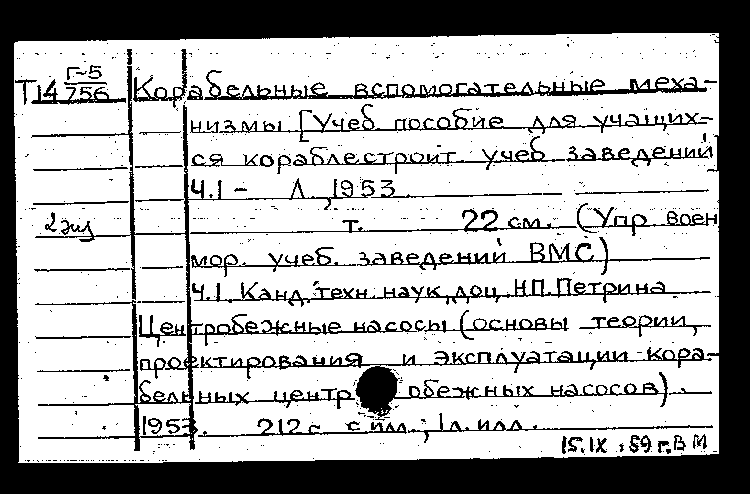 Т14 Г-5/756 Корабельные вспомогательные меха-
низмы [Учеб пособие для учащих-
ся кораблестроит учеб заведений]
Ч.1 - Л, 1953
2 экз т. 22 см. (Упр воен
мор. учеб. заведений ВМС)
Ч.1. Канд. техн. наук, доц. Н.П. Петрина
Центробежные насосы (основы теории,
проектирования и эксплуатации кора-
бельных центр обежных насосов).
1953. 212 с с илл.; 1 л. илл.
15.IX.59 г. ВМ